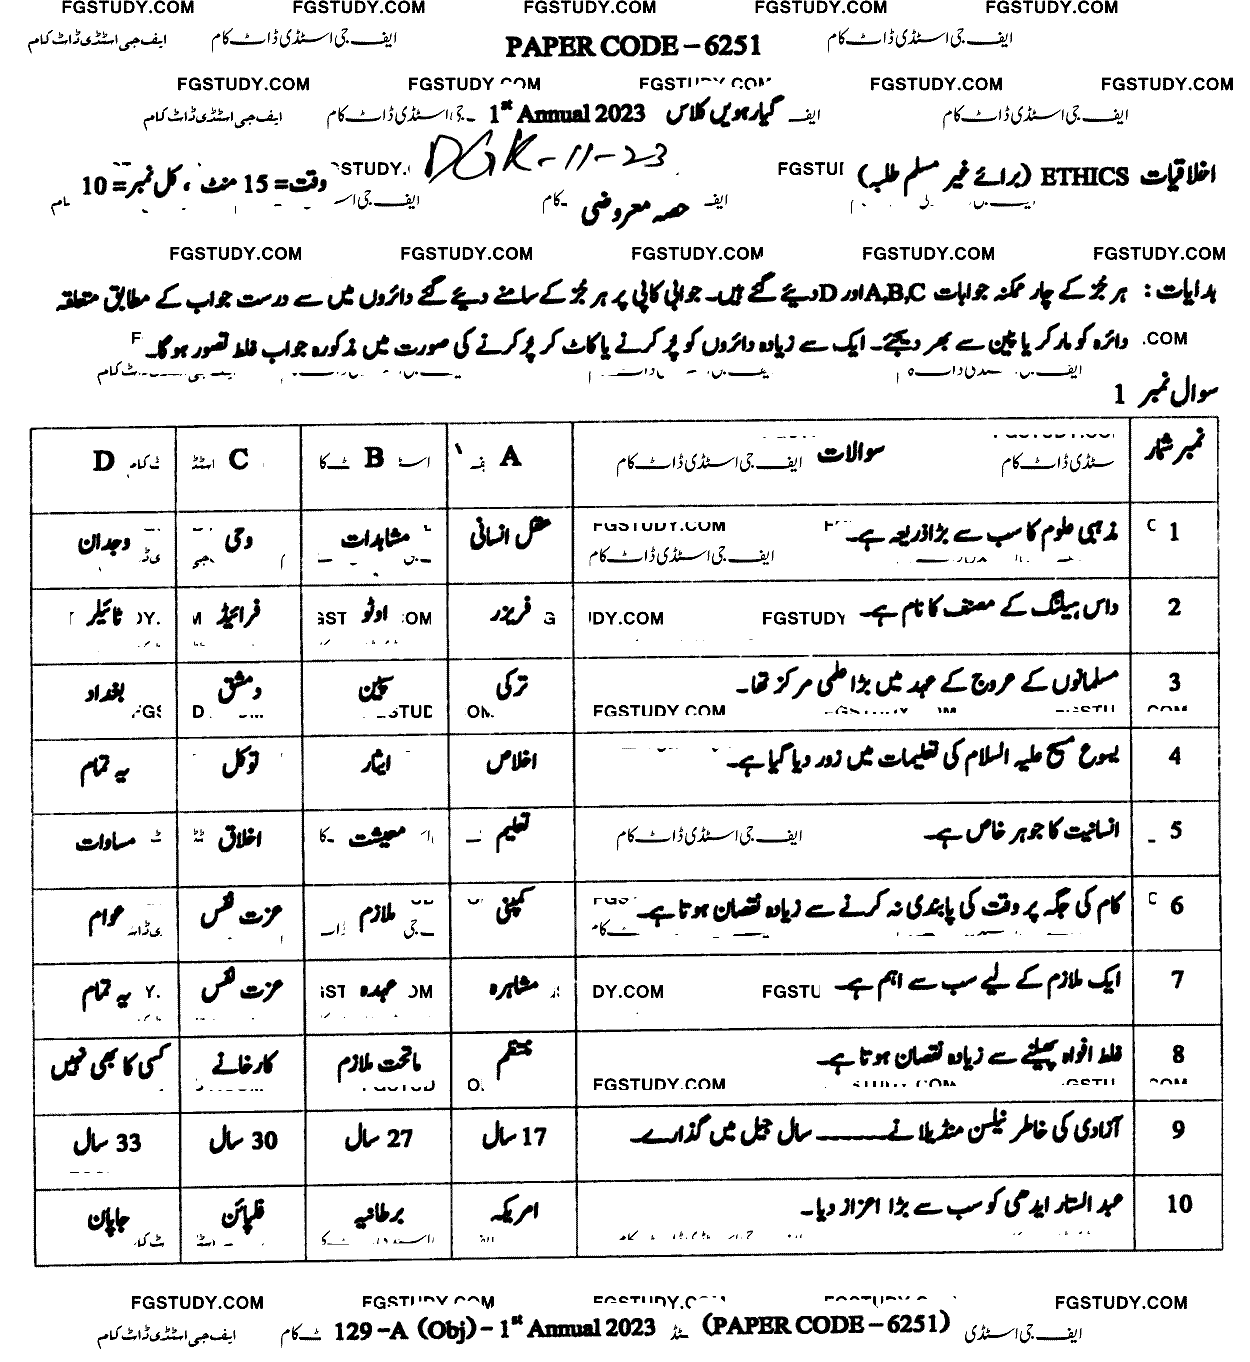 FGSTUDY.COM FGSTUDY.COM FGSTUDY.COM FGSTUDY.COM FGSTUDY.COM
ایف جی اسٹڈی ڈاٹ کام PAPER CODE – 6251 ایف جی اسٹڈی ڈاٹ کام ایف جی اسٹڈی ڈاٹ کام
FGSTUDY.COM FGSTUDY.COM FGSTUDY.COM FGSTUDY.COM
ایف جی اسٹڈی ڈاٹ کام ایف گیارہویں کلاس 1st Annual 2023 جی اسٹڈی ڈاٹ کام ایف جی اسٹڈی ڈاٹ کام
DGK-11-23
اخلاقیات ETHICS (برائے غیر مسلم طلبہ) وقت= 15 منٹ ، کل نمبر= 10
حصہ معروضی
FGSTUDY.COM FGSTUDY.COM FGSTUDY.COM FGSTUDY.COM FGSTUDY.COM
ہدایات : ہر جُز کے چار ممکنہ جوابات A,B,C اور D دیئے گئے ہیں۔ جوابی کاپی پر ہر جُز کے سامنے دیئے گئے دائروں میں سے درست جواب کے مطابق متعلقہ
دائرہ کو مارکر یا پین سے بھر دیجئے۔ ایک سے زیادہ دائروں کو پُر کرنے یا کاٹ کر پُر کرنے کی صورت میں مذکورہ جواب غلط تصور ہوگا۔
سوال نمبر 1
نمبر شمار سوالات A B C D
1 مذہبی علوم کا سب سے بڑا ذریعہ ہے۔ عقل انسانی مشاہدات وحی وجدان
2 داس ہیلنگ کے مصنف کا نام ہے۔ فریزر اوٹو فرائیڈ ٹائیلر
3 مسلمانوں کے عروج کے عہد میں بڑا علمی مرکز تھا۔ ترکی سپین دمشق بغداد
4 یسوع مسیح علیہ السلام کی تعلیمات میں زور دیا گیا ہے۔ اخلاص ایثار توکل یہ تمام
5 انسانیت کا جوہر خاص ہے۔ تعلیم معیشت اخلاق مساوات
6 کام کی جگہ پر وقت کی پابندی نہ کرنے سے زیادہ نقصان ہوتا ہے۔ کمپنی ملازم عزت نفس عوام
7 ایک ملازم کے لیے سب سے اہم ہے۔ مشاہرہ عہدہ عزت نفس یہ تمام
8 غلط افواہ پھیلنے سے زیادہ نقصان ہوتا ہے۔ منتظم ماتحت ملازم کارخانے کسی کا بھی نہیں
9 آزادی کی خاطر نیلسن منڈیلا نے ______ سال جیل میں گذارے۔ 17 سال 27 سال 30 سال 33 سال
10 عبدالستار ایدھی کو سب سے بڑا اعزاز دیا۔ امریکہ برطانیہ فلپائن جاپان
FGSTUDY.COM FGSTUDY.COM FGSTUDY.COM
129 -A (Obj) – 1st Annual 2023 (PAPER CODE – 6251)